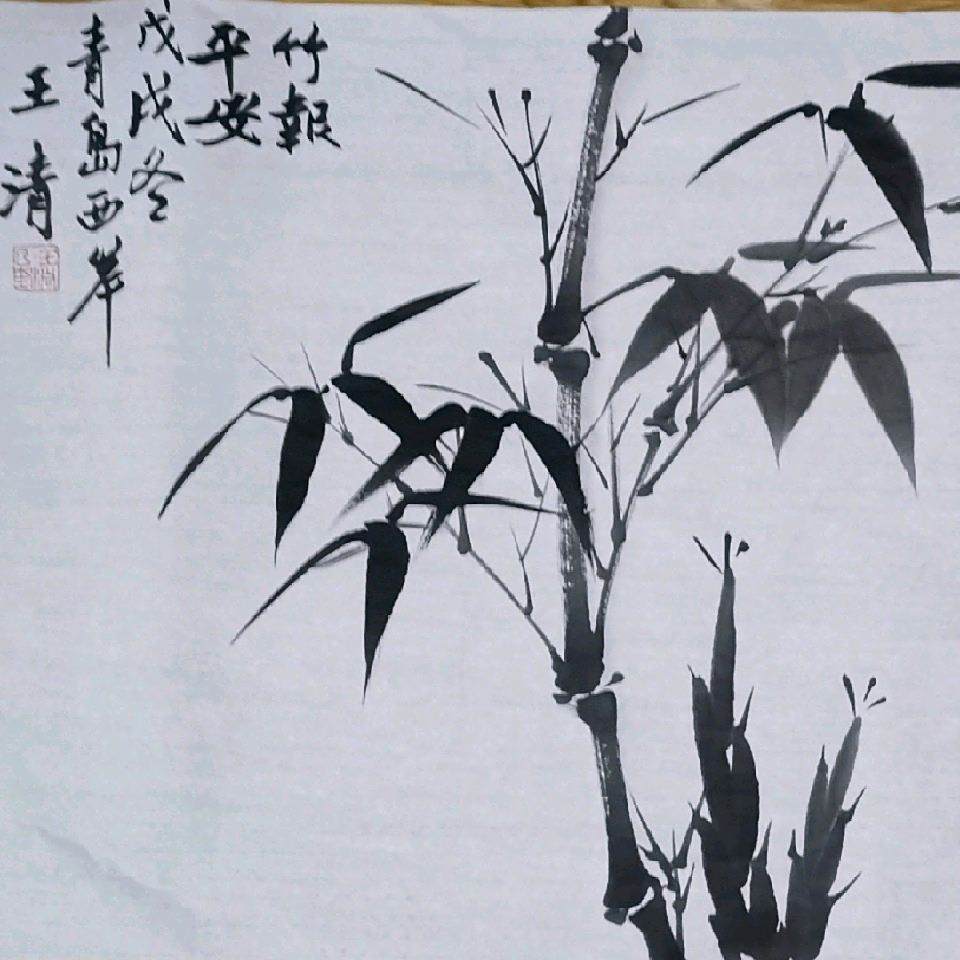 竹報
平安
戊戌冬
青島西岸
王清